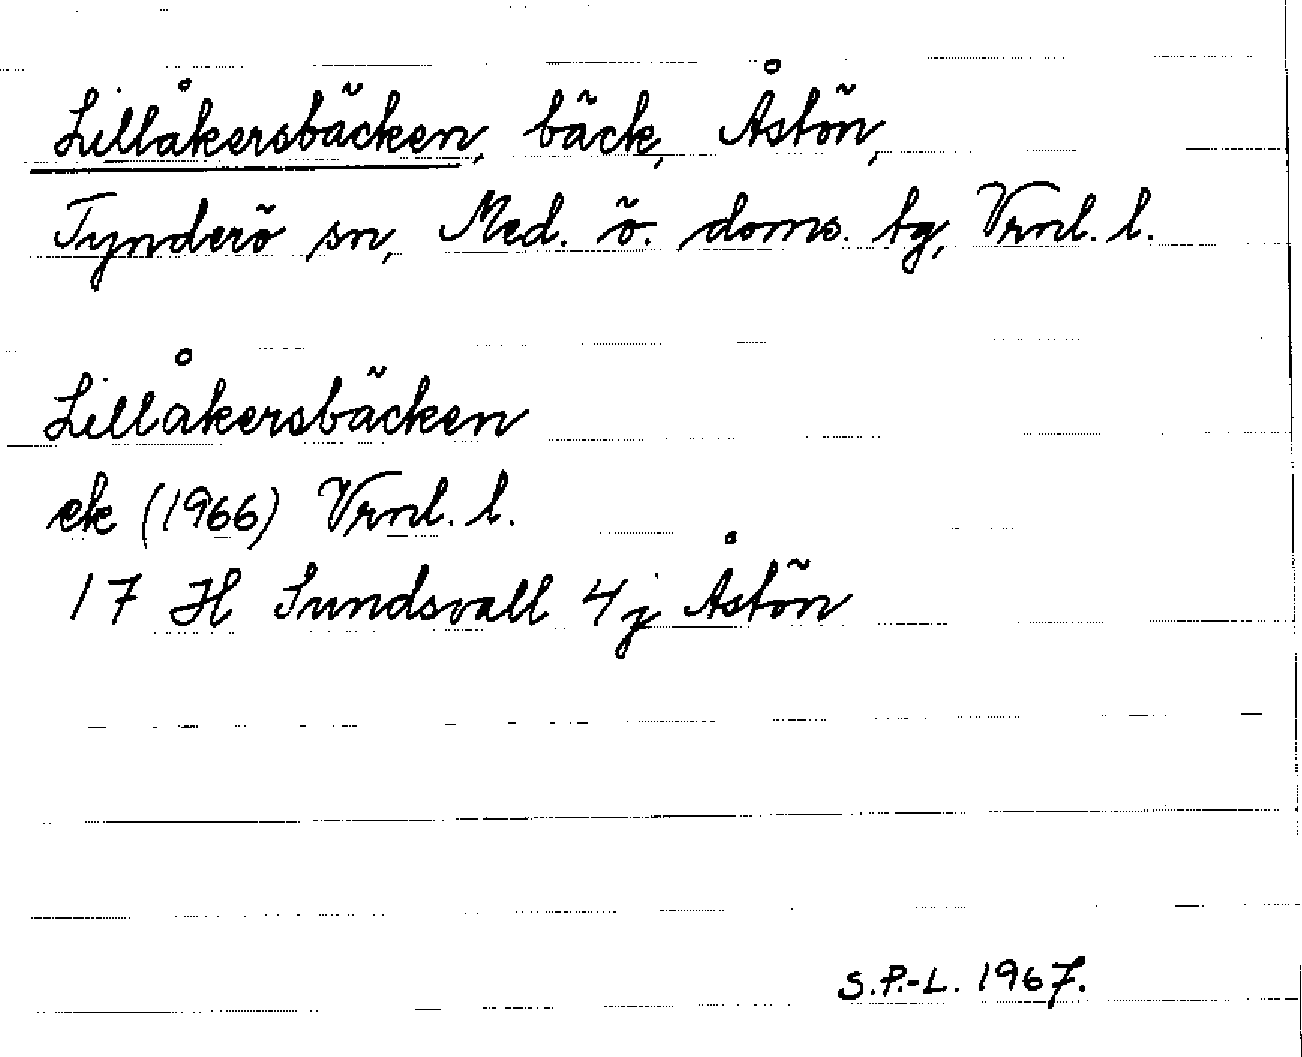 Lillåkersbäcken, bäck, Åstön,
Tynderö sn, Med. ö. doms. tg, Vrnl. l.
Lillåkersbäcken
ek (1966) Vrnl. l.
17 H Sundsvall 4j Åstön
S.P.-L. 1967.